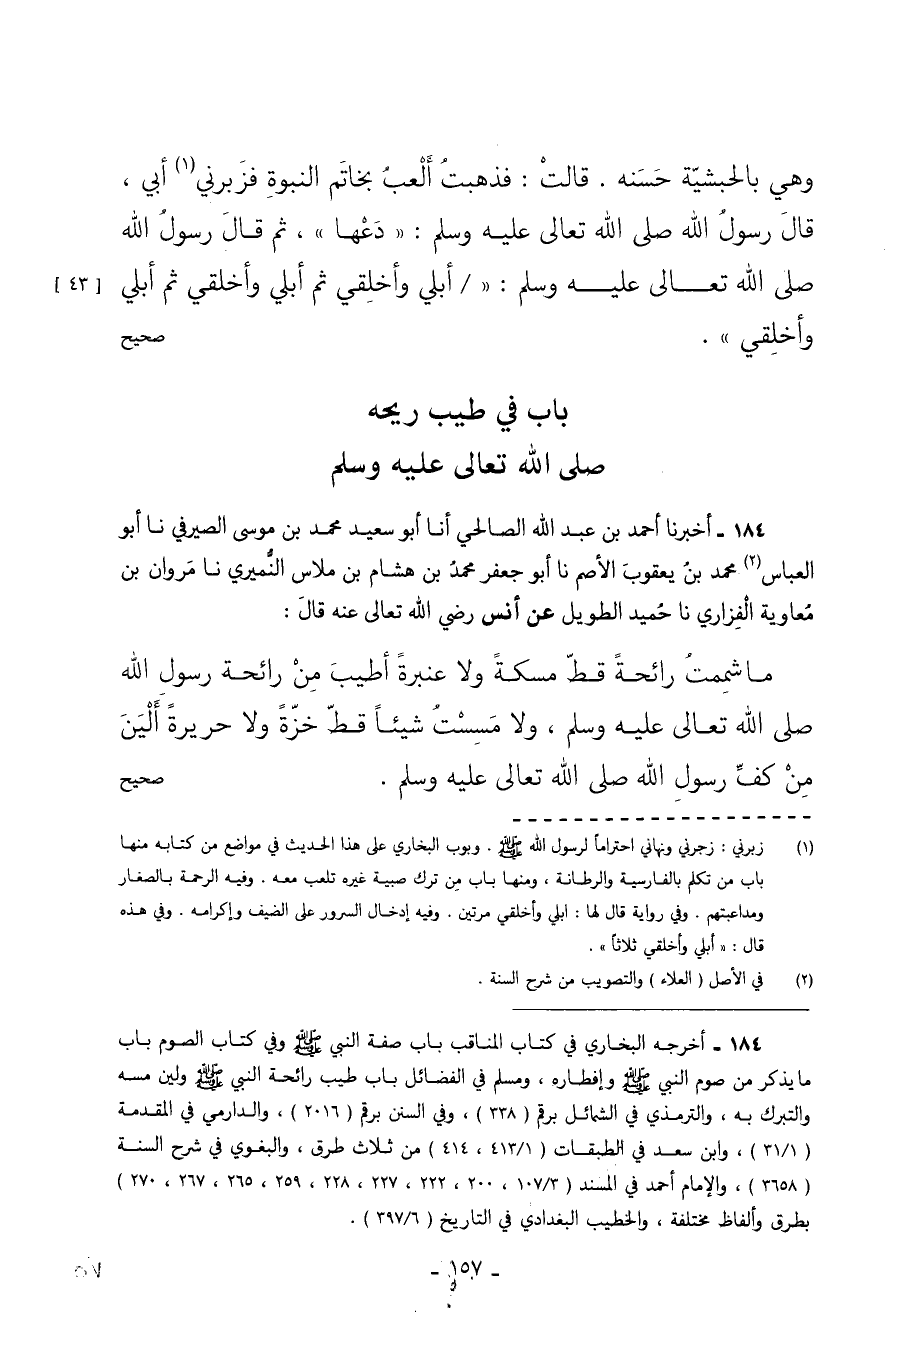 وهي بالحبشيّة حَسَنه . قالتْ : فذهبتُ أَلْعبُ بخاتَم النبوةِ فزَبرني(١) أبي ،
قالَ رسولُ الله صلى الله تعالى عليه وسلم : « دَعْها » ، ثم قالَ رسولُ الله
صلى الله تعالى عليه وسلم : « / أبلي وأخلِقي ثم أبلي وأخلقي ثم أبلي [ ٤٣ ]
وأخلِقي » . صحيح
باب في طيب ريحه
صلى الله تعالى عليه وسلم
١٨٤ ـ أخبرنا أحمد بن عبد الله الصالحي أنا أبو سعيد محمد بن موسى الصيرفي نا أبو
العباس(٢) محمد بنُ يعقوبَ الأصم نا أبو جعفر محمدُ بن هشام بن ملاس النُّميري نا مَروان بن
مُعاوية الْفِزاري نا حُميد الطويل عن أنس رضي الله تعالى عنه قالَ :
ماشممتُ رائحةً قطّ مسكةً ولا عنبرةً أطيبَ مِنْ رائحة رسول الله
صلى الله تعالى عليه وسلم ، ولا مَسِسْتُ شيئاً قطّ خزّةً ولا حريرةً أَلْيَنَ
مِنْ كفِّ رسولِ الله صلى الله تعالى عليه وسلم . صحيح
(١) زبرني : زجرني ونهاني احتراماً لرسول الله ﷺ . وبوب البخاري على هذا الحديث في مواضع من كتابه منها
باب من تكلم بالفارسية والرطانة ، ومنها باب من ترك صبية غيره تلعب معه . وفيه الرحمة بالصغار
ومداعبتهم . وفي رواية قال لها : ابلي وأخلقي مرتين . وفيه إدخال السرور على الضيف وإكرامه . وفي هذه
قال : « أبلي وأخلقي ثلاثاً » .
(٢) في الأصل ( العلاء ) والتصويب من شرح السنة .
١٨٤ ـ أخرجه البخاري في كتاب المناقب باب صفة النبي ﷺ وفي كتاب الصوم باب
مايذكر من صوم النبي ﷺ وإفطاره ، ومسلم في الفضائل باب طيب رائحة النبي ﷺ ولين مسه
والتبرك به ، والترمذي في الشمائل برقم ( ٣٣٨ ) ، وفي السنن برقم ( ٢٠١٦ ) ، والدارمي في المقدمة
( ٣١/١ ) ، وابن سعد في الطبقات ( ٤١٣/١ ، ٤١٤ ) من ثلاث طرق ، والبغوي في شرح السنة
( ٣٦٥٨ ) ، والإمام أحمد في المسند ( ١٠٧/٣ ، ٢٠٠ ، ٢٢٢ ، ٢٢٧ ، ٢٢٨ ، ٢٥٩ ، ٢٦٥ ، ٢٦٧ ، ٢٧٠ )
بطرق وألفاظ مختلفة ، والخطيب البغدادي في التاريخ ( ٣٩٧/٦ ) .
ـ ١٥٧ ـ